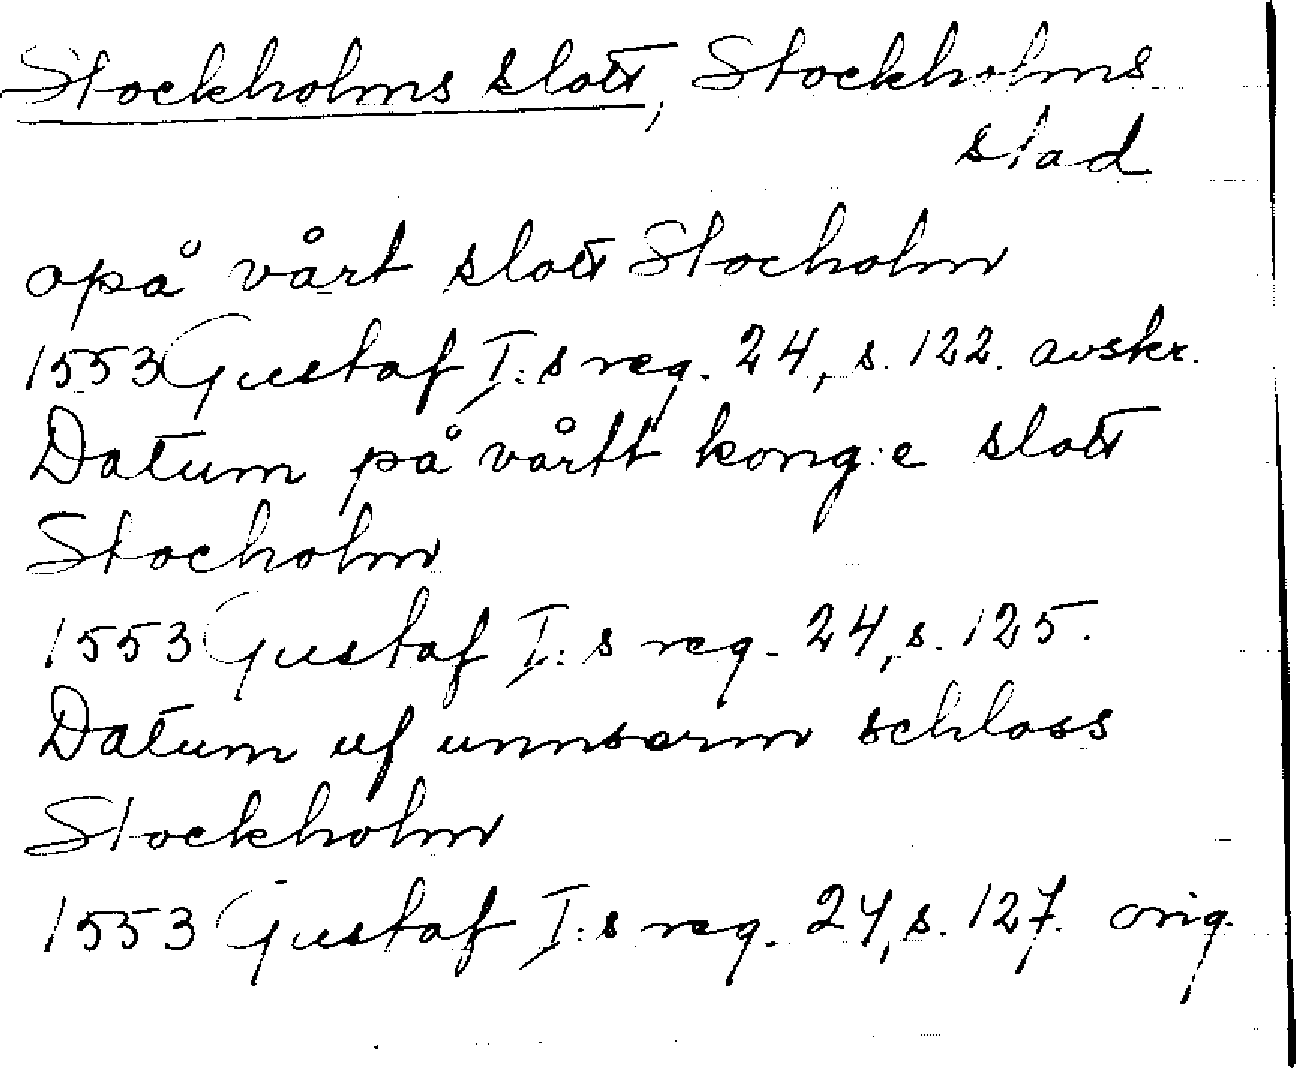 Stockholms slott, Stockholms
stad
opå vårt slott Stocholm
1553 Gustaf I:s reg. 24, s. 122. avskr.
Datum på vårtt kong:e slott
Stocholm
1553 Gustaf I:s reg. 24, s. 125.
Datum uf unnserm schloss
Stockholm
1553 Gustaf I:s reg. 24, s. 127. orig.